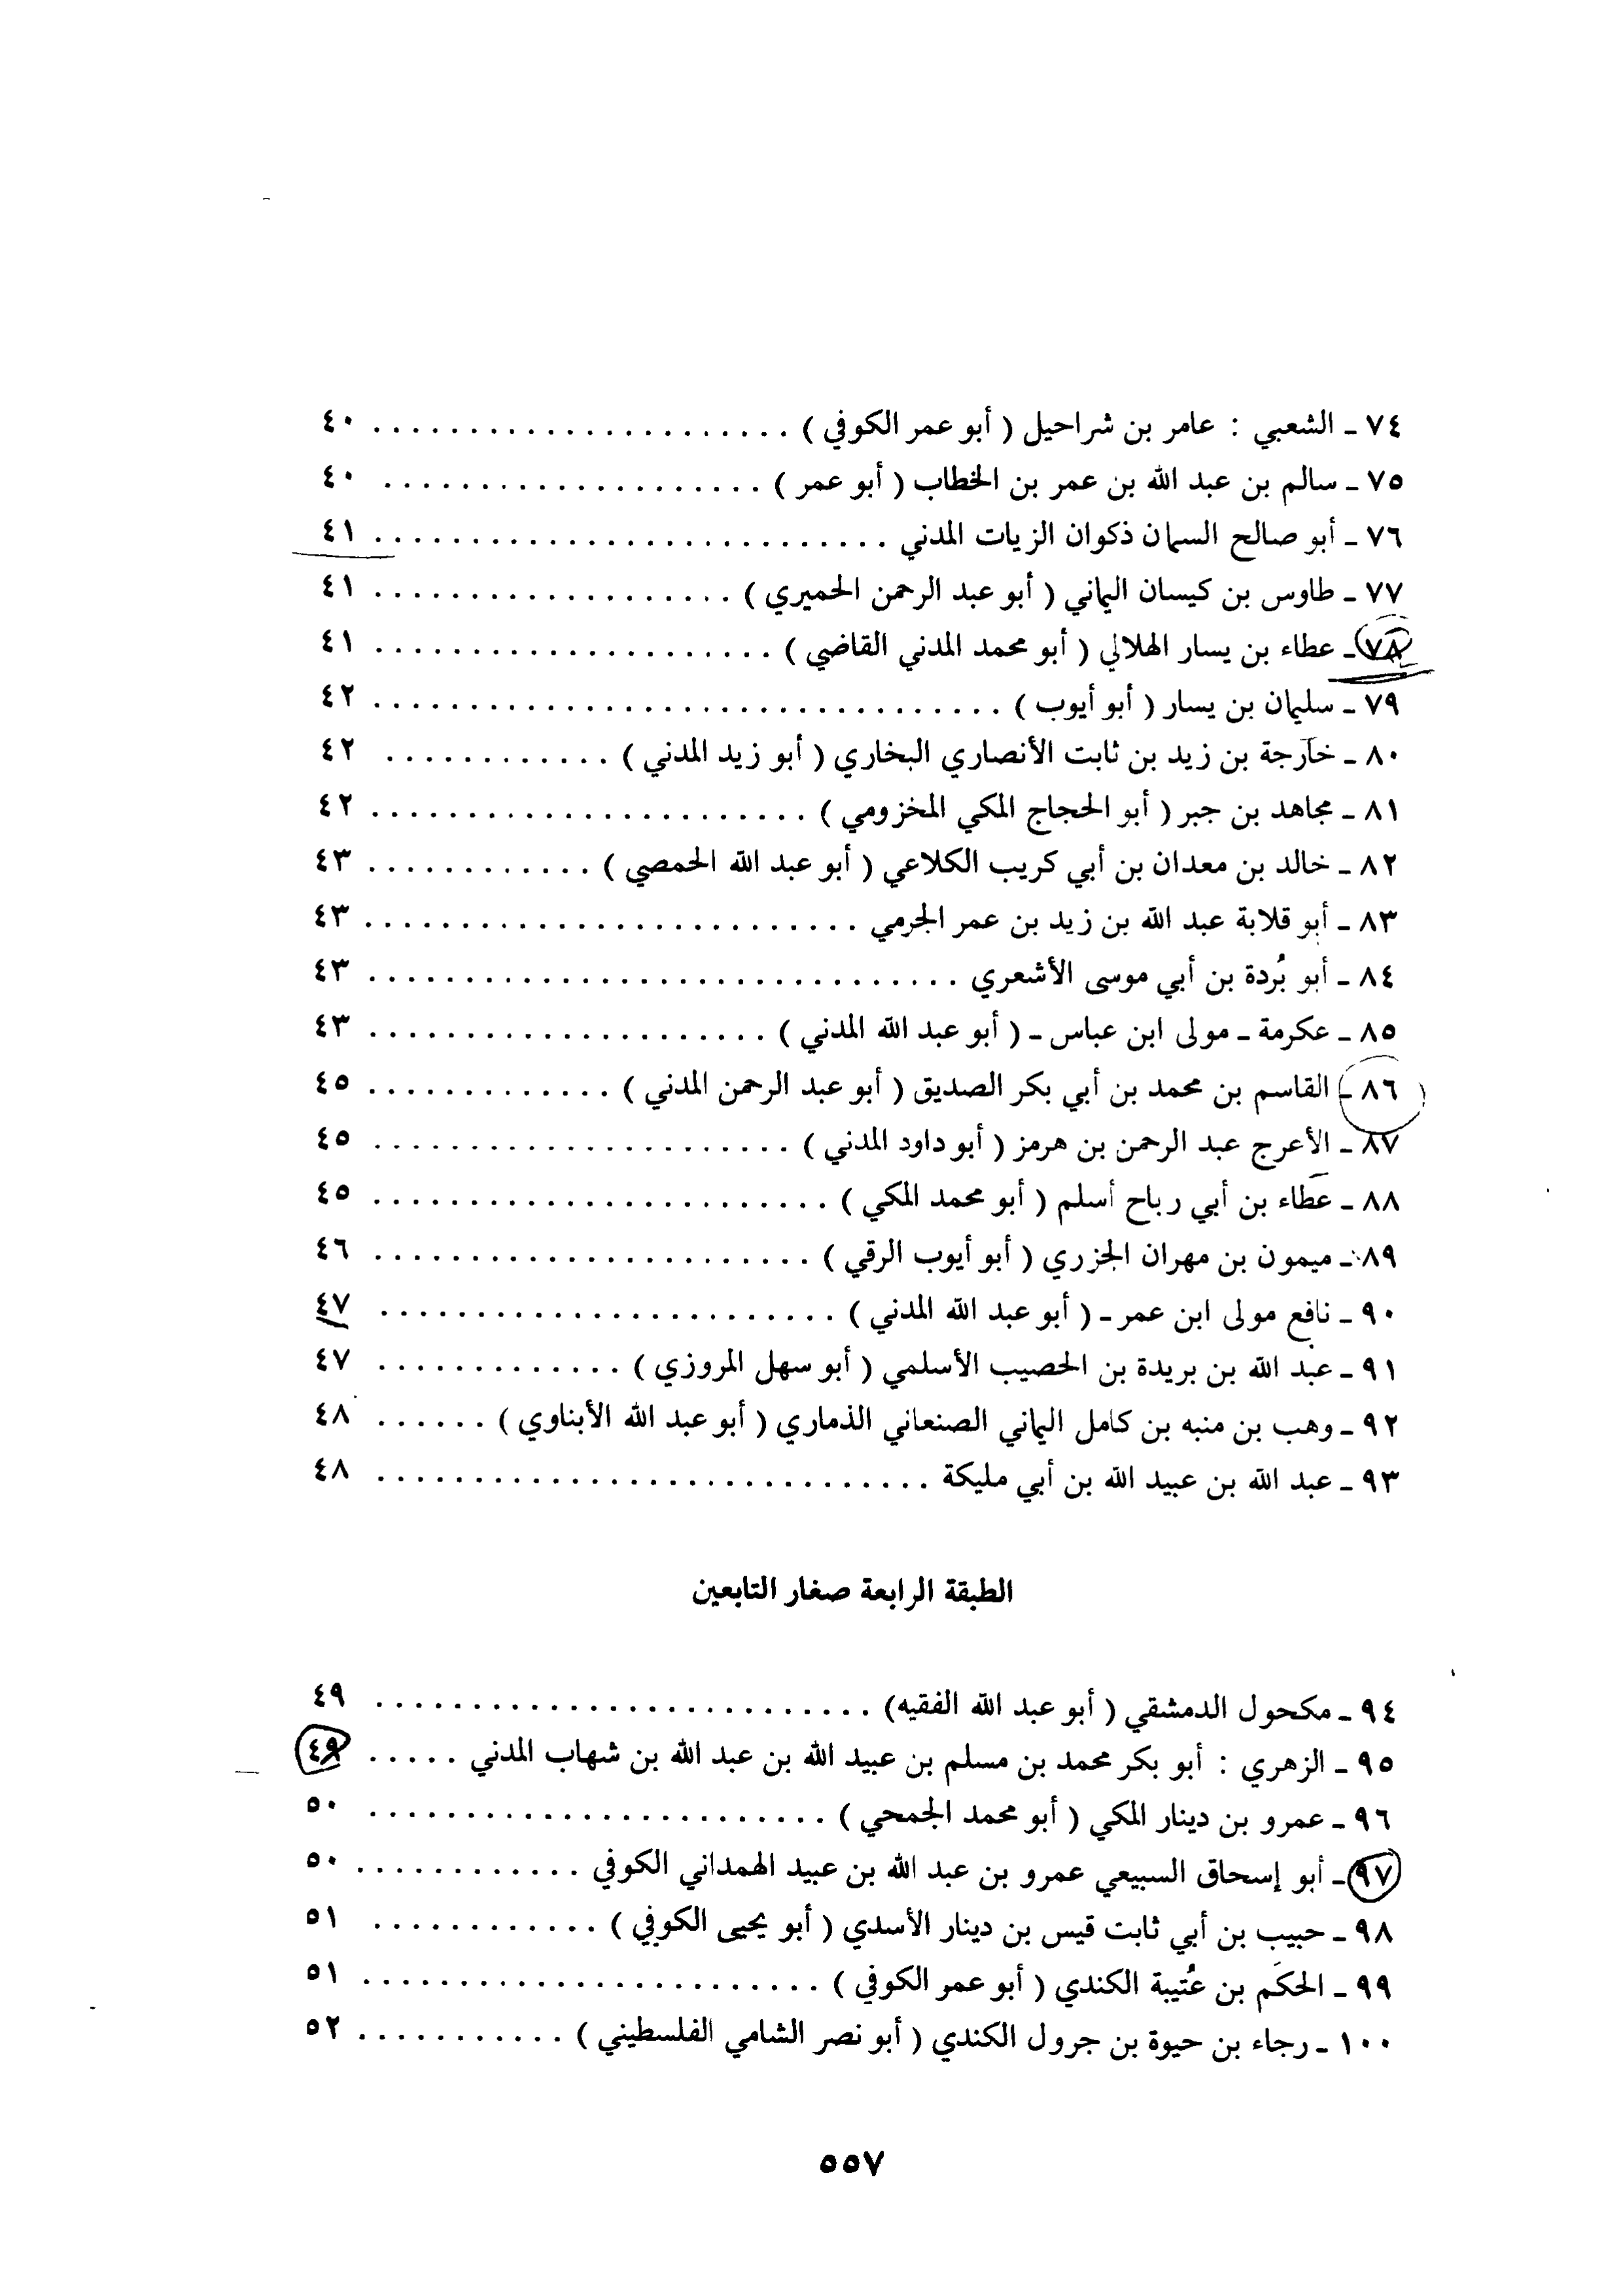 ٧٤ ـ الشعبي : عامر بن شراحيل ( أبو عمر الكوفي ) . . . . . . . . . . . . . . . . . . . . . . ٤٠
٧٥ ـ سالم بن عبد الله بن عمر بن الخطاب ( أبو عمر ) . . . . . . . . . . . . . . . . . . . . ٤٠
٧٦ ـ أبو صالح السمان ذكوان الزيات المدني . . . . . . . . . . . . . . . . . . . . . . . . . . . ٤١
٧٧ ـ طاوس بن كيسان اليماني ( أبو عبد الرحمن الحميري ) . . . . . . . . . . . . . . . . . . . ٤١
٧٨ ـ عطاء بن يسار الهلالي ( أبو محمد المدني القاضي ) . . . . . . . . . . . . . . . . . . . . . ٤١
٧٩ ـ سليمان بن يسار ( أبو أيوب ) . . . . . . . . . . . . . . . . . . . . . . . . . . . . . . . . . ٤٢
٨٠ ـ خارجة بن زيد بن ثابت الأنصاري البخاري ( أبو زيد المدني ) . . . . . . . . . . . . ٤٢
٨١ ـ مجاهد بن جبر ( أبو الحجاج المكي المخزومي ) . . . . . . . . . . . . . . . . . . . . . . . ٤٢
٨٢ ـ خالد بن معدان بن أبي كريب الكلاعي ( أبو عبد الله الحمصي ) . . . . . . . . . . . . ٤٣
٨٣ ـ أبو قلابة عبد الله بن زيد بن عمر الجرمي . . . . . . . . . . . . . . . . . . . . . . . . . . ٤٣
٨٤ ـ أبو بُردة بن أبي موسى الأشعري . . . . . . . . . . . . . . . . . . . . . . . . . . . . . . . ٤٣
٨٥ ـ عكرمة ـ مولى ابن عباس ـ ( أبو عبد الله المدني ) . . . . . . . . . . . . . . . . . . . . . ٤٣
٨٦ ـ القاسم بن محمد بن أبي بكر الصديق ( أبو عبد الرحمن المدني ) . . . . . . . . . . . . . ٤٥
٨٧ ـ الأعرج عبد الرحمن بن هرمز ( أبو داود المدني ) . . . . . . . . . . . . . . . . . . . . . . ٤٥
٨٨ ـ عطاء بن أبي رباح أسلم ( أبو محمد المكي ) . . . . . . . . . . . . . . . . . . . . . . . . ٤٥
٨٩ ـ ميمون بن مهران الجزري ( أبو أيوب الرقي ) . . . . . . . . . . . . . . . . . . . . . . . ٤٦
٩٠ ـ نافع مولى ابن عمر ـ ( أبو عبد الله المدني ) . . . . . . . . . . . . . . . . . . . . . . . . ٤٧
٩١ ـ عبد الله بن بريدة بن الحصيب الأسلمي ( أبو سهل المروزي ) . . . . . . . . . . . . . ٤٧
٩٢ ـ وهب بن منبه بن كامل اليماني الصنعاني الذماري ( أبو عبد الله الأبناوي ) . . . . . . ٤٨
٩٣ ـ عبد الله بن عبيد الله بن أبي مليكة . . . . . . . . . . . . . . . . . . . . . . . . . . . . . ٤٨
الطبقة الرابعة صغار التابعين
٩٤ ـ مكحول الدمشقي ( أبو عبد الله الفقيه) . . . . . . . . . . . . . . . . . . . . . . . . . . ٤٩
٩٥ ـ الزهري : أبو بكر محمد بن مسلم بن عبيد الله بن عبد الله بن شهاب المدني . . . . . ٤٩
٩٦ ـ عمرو بن دينار المكي ( أبو محمد الجمحي ) . . . . . . . . . . . . . . . . . . . . . . . . ٥٠
٩٧ ـ أبو إسحاق السبيعي عمرو بن عبد الله بن عبيد الهمداني الكوفي . . . . . . . . . . . . ٥٠
٩٨ ـ حبيب بن أبي ثابت قيس بن دينار الأسدي ( أبو يحيى الكوفي ) . . . . . . . . . . . . ٥١
٩٩ ـ الحكَم بن عُتيبة الكندي ( أبو عمر الكوفي ) . . . . . . . . . . . . . . . . . . . . . . . . ٥١
١٠٠ ـ رجاء بن حيوة بن جرول الكندي ( أبو نصر الشامي الفلسطيني ) . . . . . . . . . . . ٥٢
٥٥٧